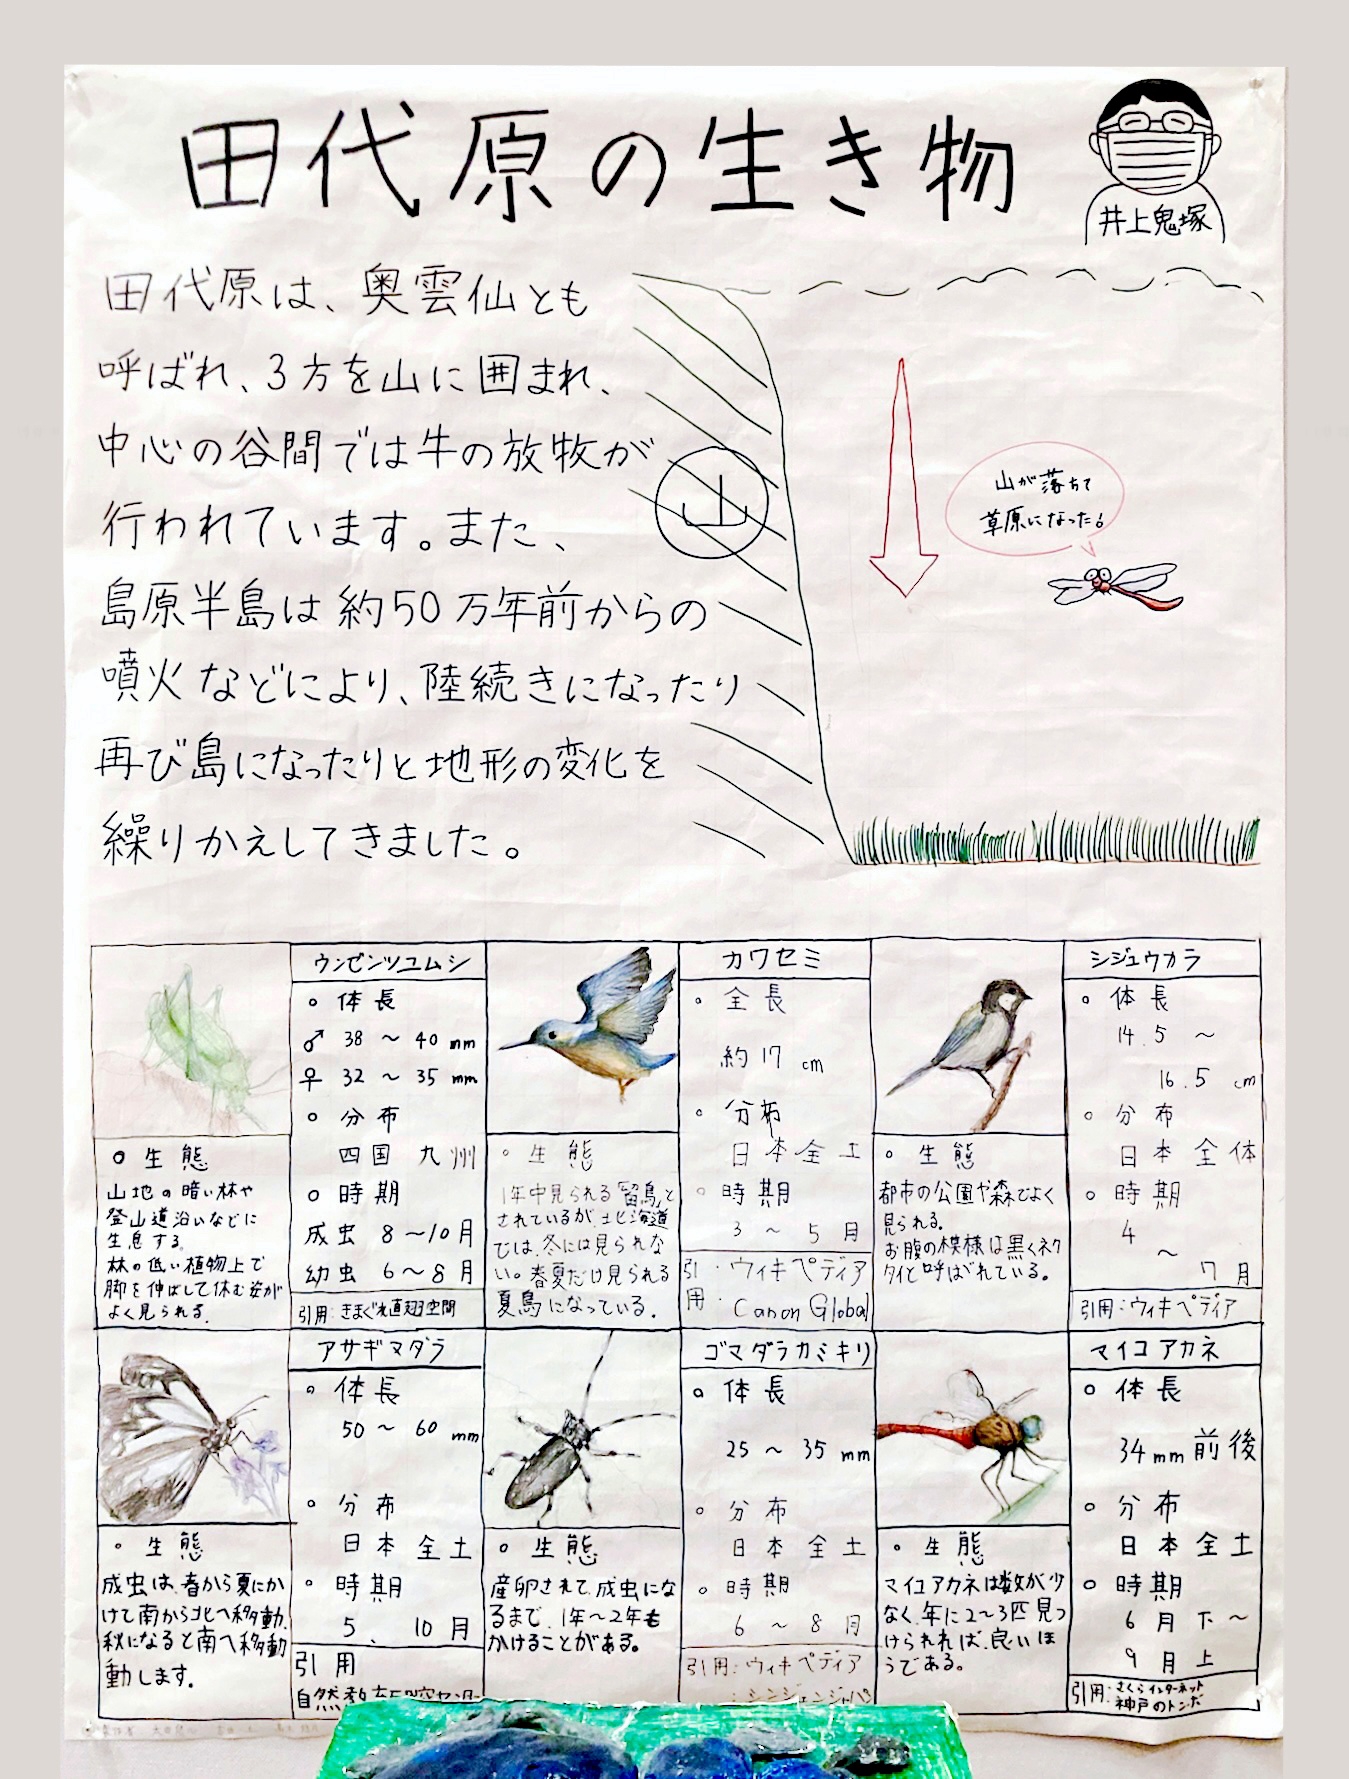 田代原の生き物
井上鬼塚
田代原は、奥雲仙とも
呼ばれ、3方を山に囲まれ、
中心の谷間では牛の放牧が
行われています。また、
島原半島は約50万年前からの
噴火などにより、陸続きになったり
再び島になったりと地形の変化を
繰りかえしてきました。
山
山が落ちて
草原になった。
ウンゼンツユムシ
○体長
♂ 38 ～ 40 mm
♀ 32 ～ 35 mm
○分布
四国 九州
○時期
成虫 8～10月
幼虫 6～8月
引用:きまぐれ直翅空間
○生態
山地の暗い林や
登山道沿いなどに
生息する。
林の低い植物上で
脚を伸ばして休む姿が
よく見られる。
カワセミ
○全長
約17cm
○分布
日本全土
○時期
3～5月
引用:ウィキペディア
Canon Global
○生態
1年中見られる「留鳥」と
されているが、北海道
では、冬には見られな
い。春夏だけ見られる
夏鳥になっている。
シジュウカラ
○体長
14.5～
16.5cm
○分布
日本全体
○時期
4
～
7月
引用:ウィキペディア
○生態
都市の公園や森でよく
見られる。
お腹の模様は黒くネク
タイと呼ばれている。
アサギマダラ
○体長
50～60mm
○分布
日本全土
○時期
5、10月
引用
○生態
成虫は、春から夏にか
けて南から北へ移動、
秋になると南へ移動
動します。
ゴマダラカミキリ
○体長
25～35mm
○分布
日本全土
○時期
6～8月
引用:ウィキペディア
○生態
産卵されて、成虫にな
るまで、1年～2年も
かけることがある。
マイコアカネ
○体長
34mm前後
○分布
日本全土
○時期
6月下～
9月上
引用:さくらインターネット
神戸のトンボ
○生態
マイコアカネは数が少
なく、年に2～3匹見つ
けられれば、良いほ
うである。